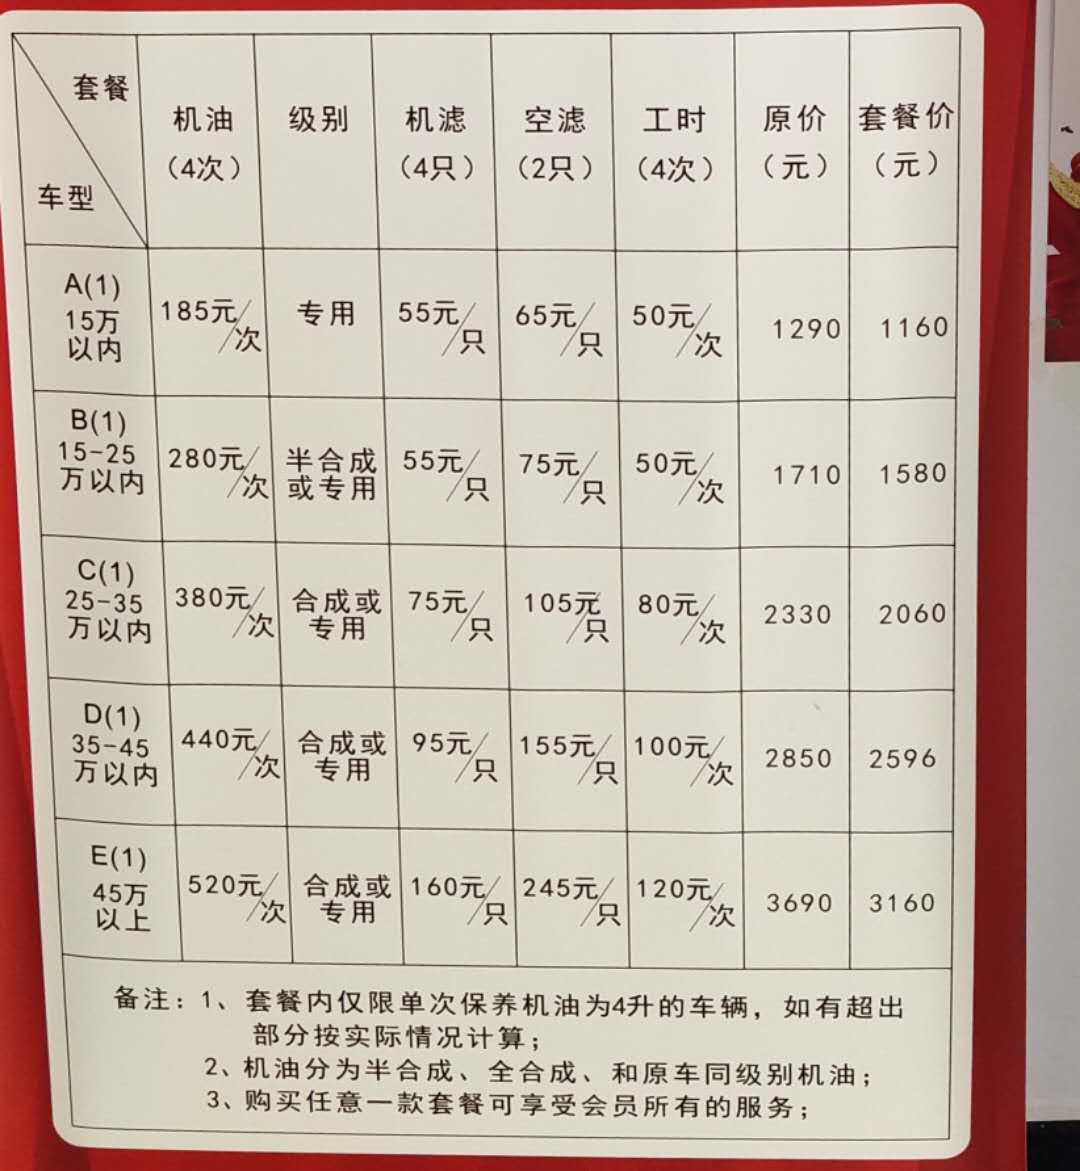 套餐
车型
机油
(4次)
级别
机滤
(4只)
空滤
(2只)
工时
(4次)
原价
(元)
套餐价
(元)
A(1)
15万
以内
185元/次
专用
55元/只
65元/只
50元/次
1290
1160
B(1)
15-25
万以内
280元/次
半合成
或专用
55元/只
75元/只
50元/次
1710
1580
C(1)
25-35
万以内
380元/次
合成或
专用
75元/只
105元/只
80元/次
2330
2060
D(1)
35-45
万以内
440元/次
合成或
专用
95元/只
155元/只
100元/次
2850
2596
E(1)
45万
以上
520元/次
合成或
专用
160元/只
245元/只
120元/次
3690
3160
备注：1、套餐内仅限单次保养机油为4升的车辆，如有超出
部分按实际情况计算；
2、机油分为半合成、全合成、和原车同级别机油；
3、购买任意一款套餐可享受会员所有的服务；